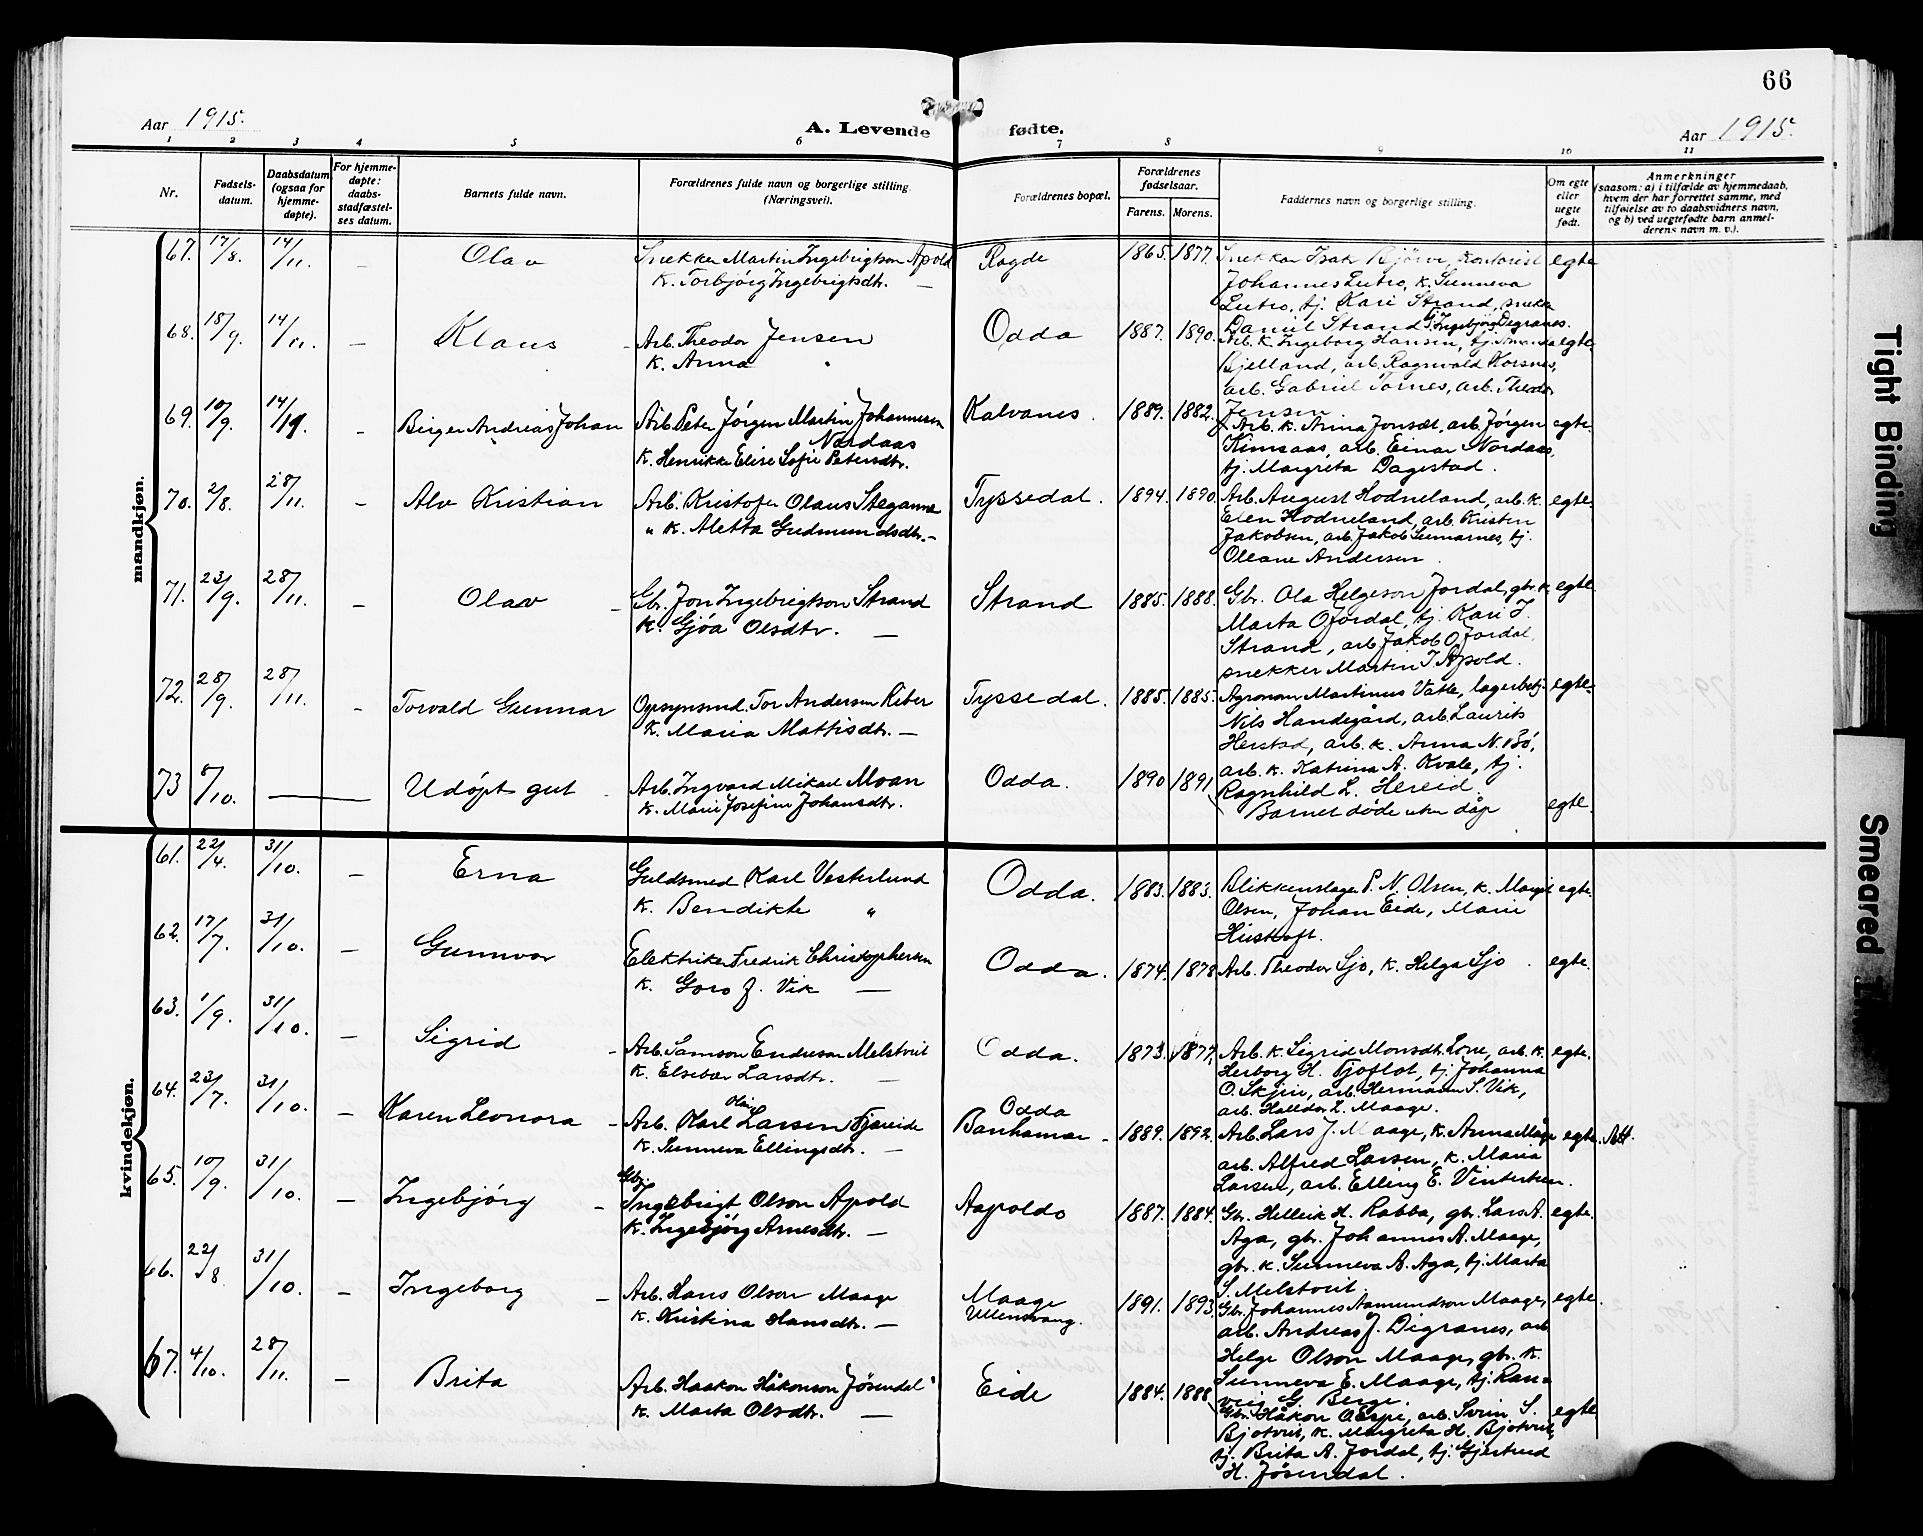 66
Aar 1915.
A. Levende
fødte.
Aar 1915.
1 2 3 4 5 6 7 8 9 10 11
Nr.
Fødsels-
datum.
Daabsdatum
(ogsaa for
hjemme-
døpte).
For hjemme-
døpte:
daabs-
stadfæstel-
ses datum.
Barnets fulde navn.
Forældrenes fulde navn og borgerlige stilling
(Næringsvei).
Forældrenes bopæl.
Forældrenes
fødselsaar.
Farens. Morens.
Faddernes navn og borgerlige stilling.
Om egte
eller
uegte
født.
Anmerkninger
(saasom: a) i tilfælde av hjemmedaab,
hvem der har forrettet samme, med
tilføielse av to daabsvidners navn,
og b) ved uegtefødte barn anmel-
derens navn m. v.).
mandkjøn.
67. 17/8. 14/11. – Olav
Snekker Martin Ingebrigtson Apold
K. Torbjörg Ingebrigtsdtr. —
Ragde 1865. 1877.
Snekker Isak Bjørve, kontorist
Johannes Lutro, k. Sunneva
Lutro, tj. Kari Strand, snekk
Daniel Strand, Ingebjörg Degranes.
egte
68. 18/9. 14/11. – Klaus
Arb. Theodor Jensen
K. Anna "
Odda 1887. 1890.
Arb. k. Ingeborg Hansen, tj.
Bjelland, arb. Ragnvald Korsnes,
arb. Gabriel Tornes, arb. Theodor
Jensen
egte.
69. 10/9. 14/11. – Birger Andreas Johan
Arb. Peter Jörgen Martin Johannesen
Nordaas
K. Henrikke Elise Sofie Petersdtr.
Kalvanes. 1889. 1882.
Arb. k. Anna Jonsdt, arb. Jörgen
Kinsaas, arb. Einar Nordaas,
tj. Margreta Dagestad.
egte.
70. 2/8. 28/11. – Alv Kristian
Arb. Kristofer Olaus Steganne
" K. Aletta Gudmundsdtr. –
Tyssedal. 1894. 1890.
Arb. August Hodneland, arb. k.
Elen Hodneland, arb. Kristen
Jakobsen, arb. Jakob Sumarnes, tj.
Oleane Andersen.
egte.
71. 23/9. 28/11. – Olav –
Gbr. Jon Ingebrigtson Strand
K. Gjøa Olsdtr. —
Strand 1885. 1888.
Gbr. Ola Helgeson Jordal, gbr. k.
Marta O Jordal, tj. Kari J.
Strand, arb. Jakob O Jordal,
snekker Martin I Apold.
egte.
72. 28/9. 28/11. – Torvald Gunnar
Opsynsmd. Tor Andersen Riber
K. Maria Mattisdtr. —
Tyssedal. 1885. 1885.
Agronom Martinus Vatle, lagerbetj.
Nils Handegård, arb. Laurits
Herstad, arb. k. Anna N. Bö,
arb. k. Katrina A. Kvale, tj.
Ragnhild L. Hereid.
egte.
73 8/10. — Udöpt gut
Arb. Ingvard Mikael Moan
K. Marie Josefine Johansdtr.
Odda. 1890 1891
Barnet døde uten dåp
egte
kvindekjøn.
61. 22/4. 31/10. – Erna
Guldsmed Karl Vesterlund
K. Bendikte "
Odda. 1883. 1883.
Blikkenslager P. N. Olsen, k. Margit
Olsen, Johan Eide, Marie
egte.
62. 17/7. 31/10. – Gunnvor
Elektriker Fredrik Christophersen
K. Goro J. Vik —
Odda. 1874. 1878
Arb. Theodor Sjo, k. Helga Sjo.
egte.
63. 1/9. 31/10. – Sigrid –
Arb. Samson Endreson Melstveit
K. Elsebar Larsdtr. —
Odda. 1873. 1877,
Arb. k. Sigrid Monsdt. Lone, arb. k.
Herborg H. Tjoflot, tj. Johanna
O. Skjeie, arb. Hermann S. Vik,
arb. Halldor L. Maage.
egte.
64. 23/7. 31/10. – Karen Leonora –
Arb. Karl Olai Larsen Tjoreide
K. Sunneva Ellingsdtr. —
Odda
Banhamar – 1889. 1892.
Arb. Lars J. Maage, k. Anna Måge
arb. Alfred Larsen, k. Maria
Larsen, arb. Elling E. Vinterhun.
egte. Att.
65. 10/9. 31/10. – Ingebjörg –
Gbr.
Ingebrigt Olson Apold
K. Ingebjörg Arnesdtr. —
Aapoldo 1887. 1884.
Gbr. Helleik H. Rabba, gbr. Lars A.
Aga, gbr. Johannes A. Maage,
gbr. k. Sunneva A. Aga, tj. Marta
S. Melstveit
egte.
66. 22/8. 31/10. – Ingeborg –
Arb. Hans Olson Maage
K. Kristina Hansdtr. —
Maage
Ullensvang. 1891. 1893
Gbr. Johannes Aamundson Maage,
arb. Andreas J. Digranes, arb
Helge Olson Maage, gbr. k.
Sunneva E. Maage, tj. Ran-
veig G. Berge.
egte.
67. 4/10. 28/11. – Brita
Arb. Haakon Håkonson Jösendal
K. Marta Olsdtr. —
Eide 1884. 1888
Gbr. Håkon Aaspe, arb. Svein S.
Bjotveit, k. Margreta H. Bjotveit,
tj. Brita A. Jordal, tj. Gjertrud
H. Jösendal.
egte
Tight Binding
Smeared